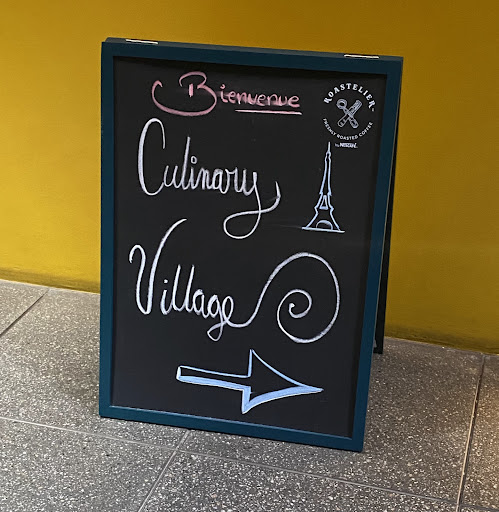 Bienvenue
ROASTELIER™
FRESHLY ROASTED COFFEE
by NESCAFÉ
Culinary
Village